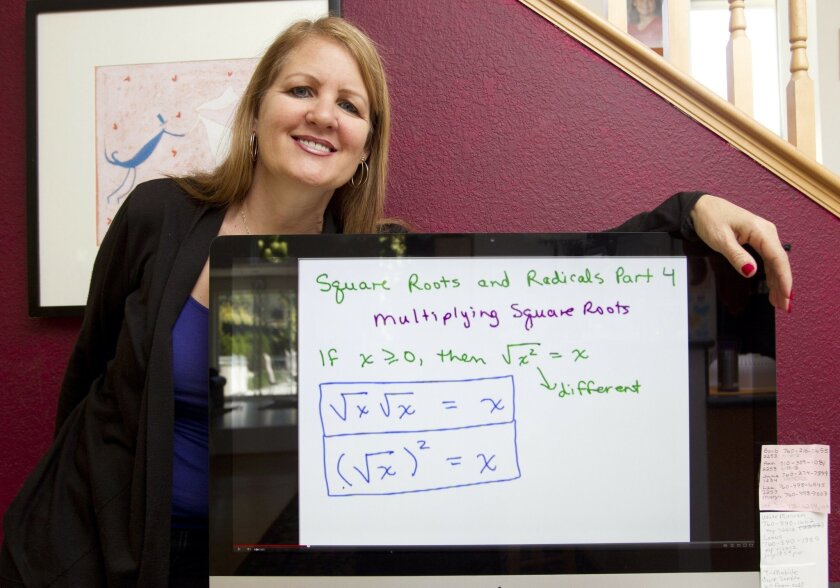 Square Roots and Radicals Part 4
Multiplying Square Roots
If x ≥ 0, then √x² = x
different
√x √x = x
(√x)² = x